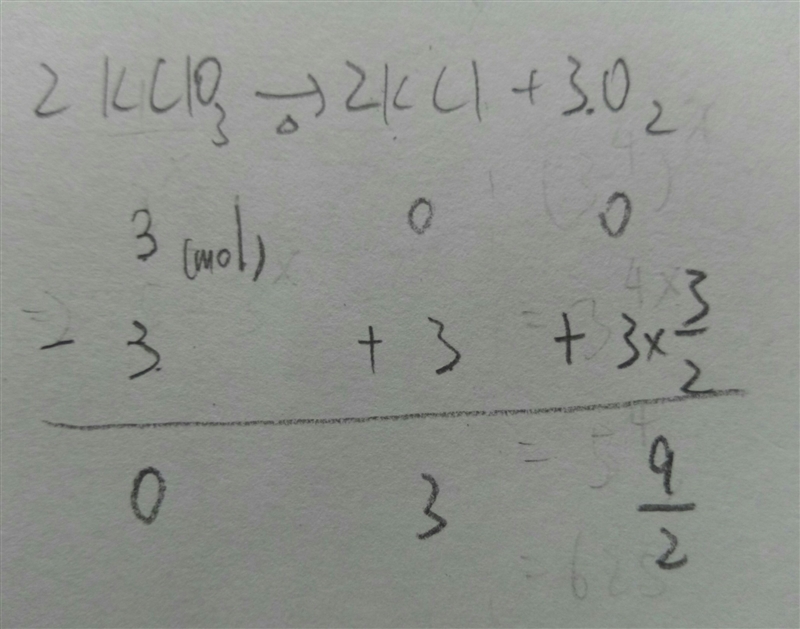 2KClO₃ →Δ 2KCl + 3O₂
3 (mol) 0 0
- 3 + 3 + 3×3/2
0 3 9/2